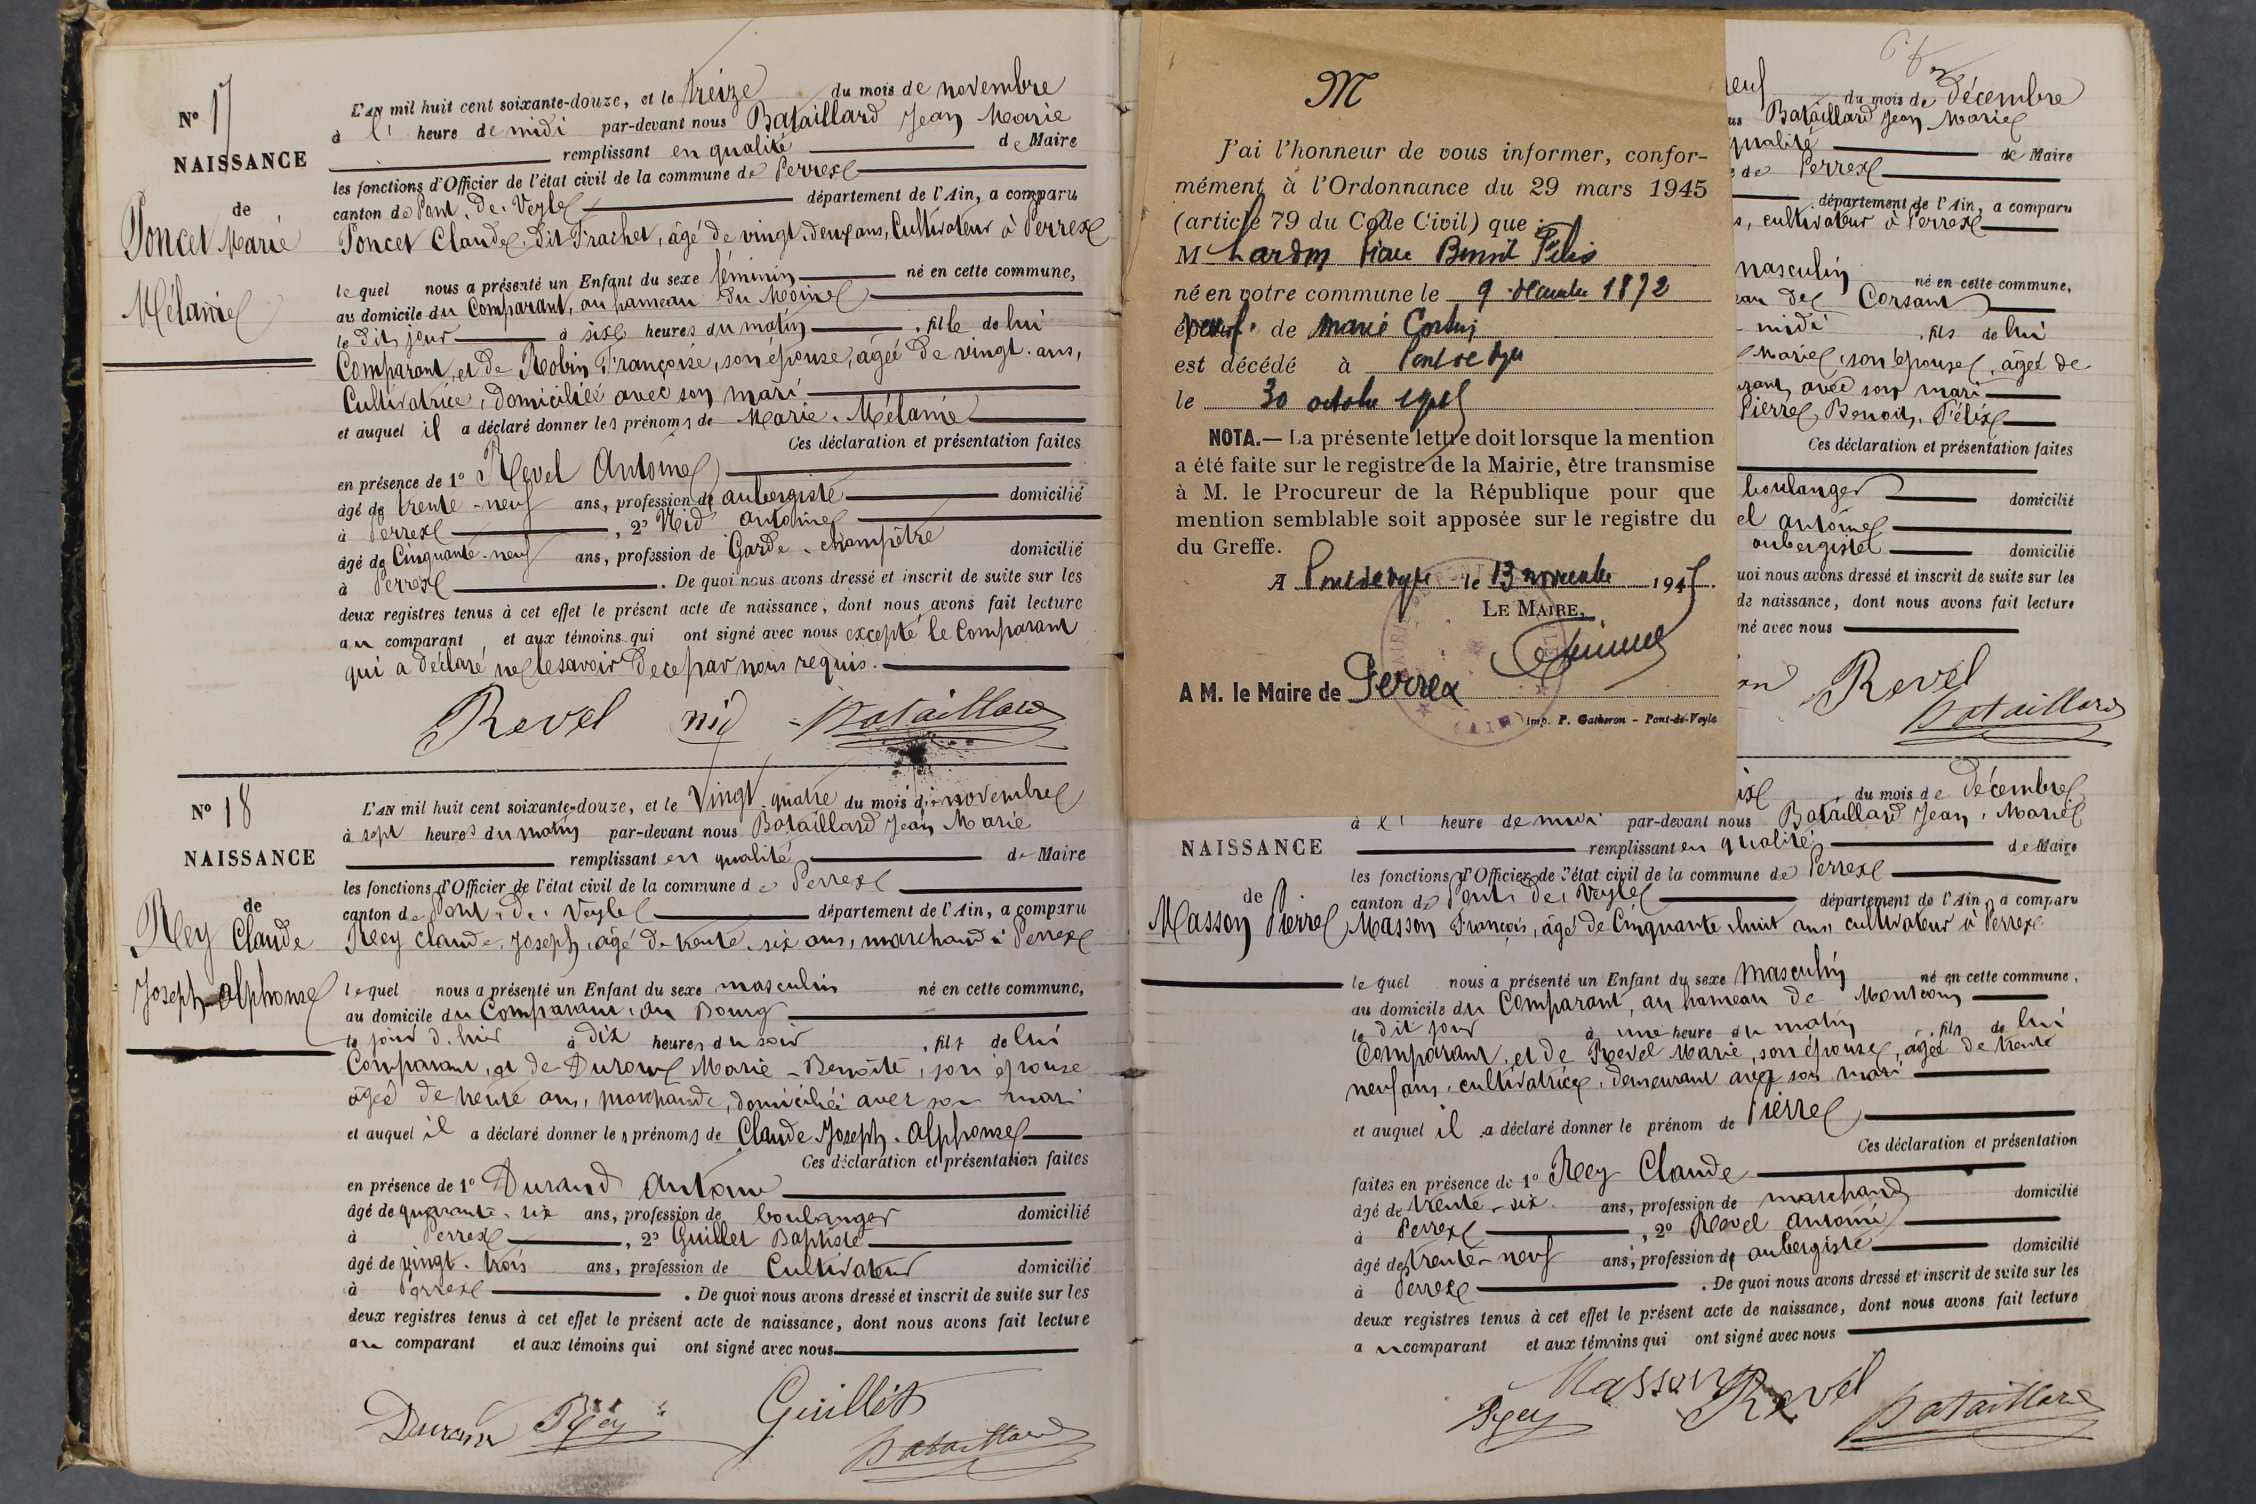 N° 17
NAISSANCE
de
Poncet Marie
Mélanie
L'AN mil huit cent soixante-douze, et le treize du mois de novembre
à l' heure de midi par-devant nous Bataillard Jean Marie
remplissant en qualité de Maire
les fonctions d'Officier de l'état civil de la commune de Perrex
canton de Pont-de-Veyle département de l'Ain, a comparu
Poncet Claude, dit Frachet, âgé de vingt-deux ans, Cultivateur à Perrex
le quel nous a présenté un Enfant du sexe féminin né en cette commune,
au domicile du Comparant, au hameau du Moine
le dit jour à six heures du matin, fille de lui
Comparant, et de Robin Françoise, son épouse, âgée de vingt-ans,
Cultivatrice, domiciliée avec son mari
et auquel il a déclaré donner les prénoms de Marie-Mélanie
Ces déclaration et présentation faites
en présence de 1° Revel Antoine
âgé de trente-neuf ans, profession de aubergiste domicilié
à Perrex, 2° Nid Antoine
âgé de Cinquante-neuf ans, profession de Garde-champêtre domicilié
à Perrex. De quoi nous avons dressé et inscrit de suite sur les
deux registres tenus à cet effet le présent acte de naissance, dont nous avons fait lecture
au comparant et aux témoins qui ont signé avec nous excepté le Comparant
qui a déclaré ne le savoir de ce par nous requis.
Revel nid Bataillard
N° 18
NAISSANCE
de
Rey Claude
Joseph-Alphonse
L'AN mil huit cent soixante-douze, et le Vingt-quatre du mois de novembre
à sept heures du matin par-devant nous Bataillard Jean Marie
remplissant en qualité de Maire
les fonctions d'Officier de l'état civil de la commune de Perrex
canton de Pont-de-Veyle département de l'Ain, a comparu
Rey Claude-Joseph, âgé de trente-six ans, marchand à Perrex
lequel nous a présenté un Enfant du sexe masculin né en cette commune,
au domicile du Comparant, au Bourg
le jour d'hier à dix heures du soir, fils de lui
Comparant, et de Marie-Benoîte, son épouse
âgée de trente ans, marchande, domiciliée avec son mari
et auquel il a déclaré donner les prénoms de Claude-Joseph-Alphonse
Ces déclaration et présentation faites
en présence de 1° Durand Antoine
âgé de quarante-six ans, profession de boulanger domicilié
à Perrex, 2° Guillet Baptiste
âgé de vingt-trois ans, profession de Cultivateur domicilié
à Perrex. De quoi nous avons dressé et inscrit de suite sur les
deux registres tenus à cet effet le présent acte de naissance, dont nous avons fait lecture
au comparant et aux témoins qui ont signé avec nous
Durand Rey Guillet
Bataillard
M
J'ai l'honneur de vous informer, confor-
mément à l'Ordonnance du 29 mars 1945
(article 79 du Code Civil) que :
M Chardon Benoit Félix
né en votre commune le 9 décembre 1872
veuf de Marie
est décédé à Pont de Veyle
le 30 octobre 1945
NOTA.— La présente lettre doit lorsque la mention
a été faite sur le registre de la Mairie, être transmise
à M. le Procureur de la République pour que
mention semblable soit apposée sur le registre du
du Greffe.
A Pont de Veyle le 13 novembre 1945.
LE MAIRE,
A M. le Maire de Perrex
Imp. P. Gatheron - Pont-de-Veyle
du mois de décembre
Bataillard Jean Marie
qualité de Maire
de Perrex
département de l'Ain, a comparu
cultivateur à Perrex
masculin né en cette commune,
de Corsant
midi, fils de lui
Marie, son épouse, âgée de
avec son mari
Pierre, Benoit, Félix
Ces déclaration et présentation faites
boulanger domicilié
antoine
aubergiste domicilié
nous avons dressé et inscrit de suite sur les
de naissance, dont nous avons fait lecture
signé avec nous
Revel
Bataillard
NAISSANCE
de
Masson Pierre
du mois de décembre
à l' heure de midi par-devant nous Bataillard Jean, Marie
remplissant en qualité de Maire
les fonctions d'Officier de l'état civil de la commune de Perrex
canton de Pont-de-Veyle département de l'Ain, a comparu
Masson François, âgé de Cinquante-huit ans, cultivateur à Perrex
le quel nous a présenté un Enfant du sexe masculin né en cette commune,
au domicile du Comparant, au hameau de
le dit jour à une heure du matin, fils de lui
Comparant, et de Revel Marie, son épouse, âgée de trente
neuf ans, cultivatrice, demeurant avec son mari
et auquel il a déclaré donner le prénom de Pierre
Ces déclaration et présentation
faites en présence de 1° Rey Claude
âgé de trente-six ans, profession de marchand domicilié
à Perrex, 2° Revel Antoine
âgé de trente-neuf ans, profession de aubergiste domicilié
à Perrex. De quoi nous avons dressé et inscrit de suite sur les
deux registres tenus à cet effet le présent acte de naissance, dont nous avons fait lecture
au comparant et aux témoins qui ont signé avec nous
Masson Revel
Rey Bataillard